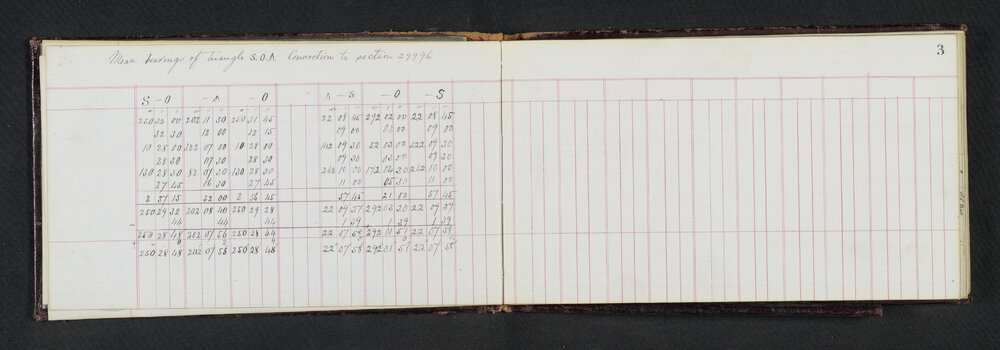 3
Mean bearings of triangle S.O.A. Connection to section 29996.
S – O – A – O A – S – O – S
250 32 00 202 11 30 250 31 45 22 08 45 292 02 00 22 08 45
32 30 12 00 32 15 09 00 03 00 09 00
10 28 00 322 07 00 10 28 00 142 09 30 52 03 00 322 09 30
28 30 07 30 28 30 09 30 03 00 09 30
130 28 30 82 07 30 130 28 30 262 10 00 172 04 30 262 10 00
27 45 06 30 27 45 11 00 05 30 11 00
2 57 15 52 00 2 56 45 57 45 21 00 57 45
250 29 32 202 08 40 250 29 28 22 09 37 292 03 30 22 09 37
44 44 44 1 39 1 39 1 39
250 28 48 202 07 56 250 28 44 22 07 58 292 01 51 22 07 58
250 28 48 202 07 58 250 28 48 22 07 58 292 01 51 22 07 58